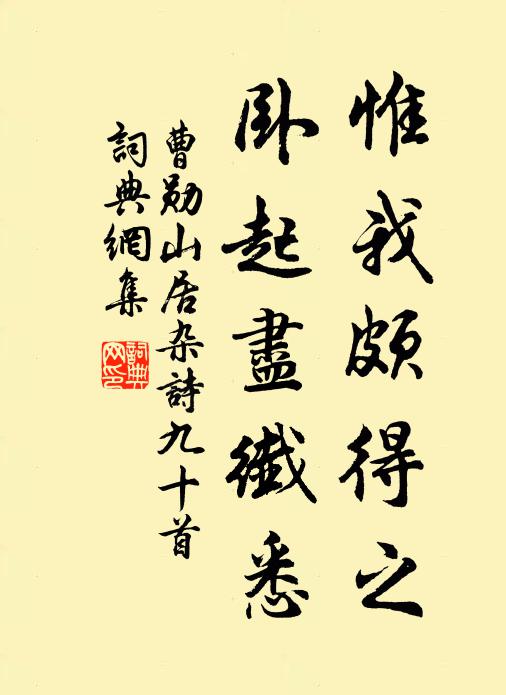 惟我頗得之
卧起盡纖悉
曹勛山居杂詩九十首
詞典網集
詞典网印